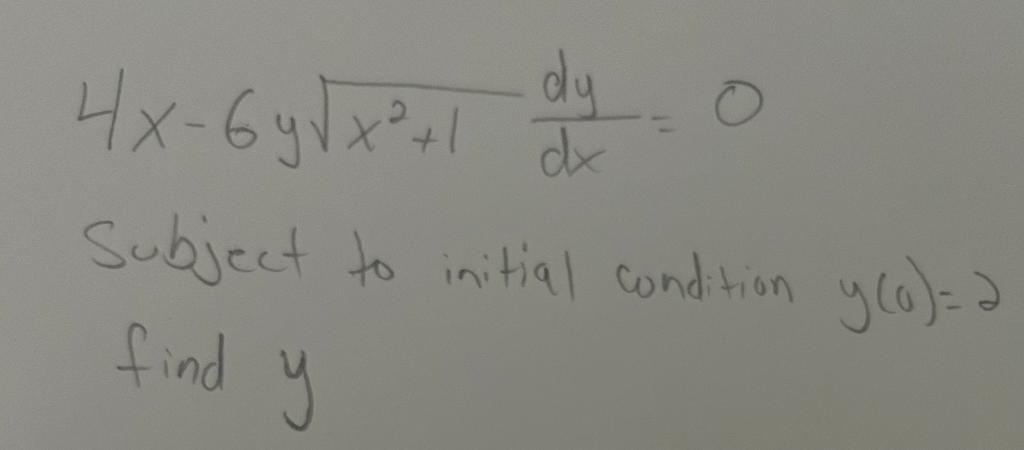 4x - 6y√(x²+1) dy/dx = 0
Subject to initial condition y(0)=2
find y